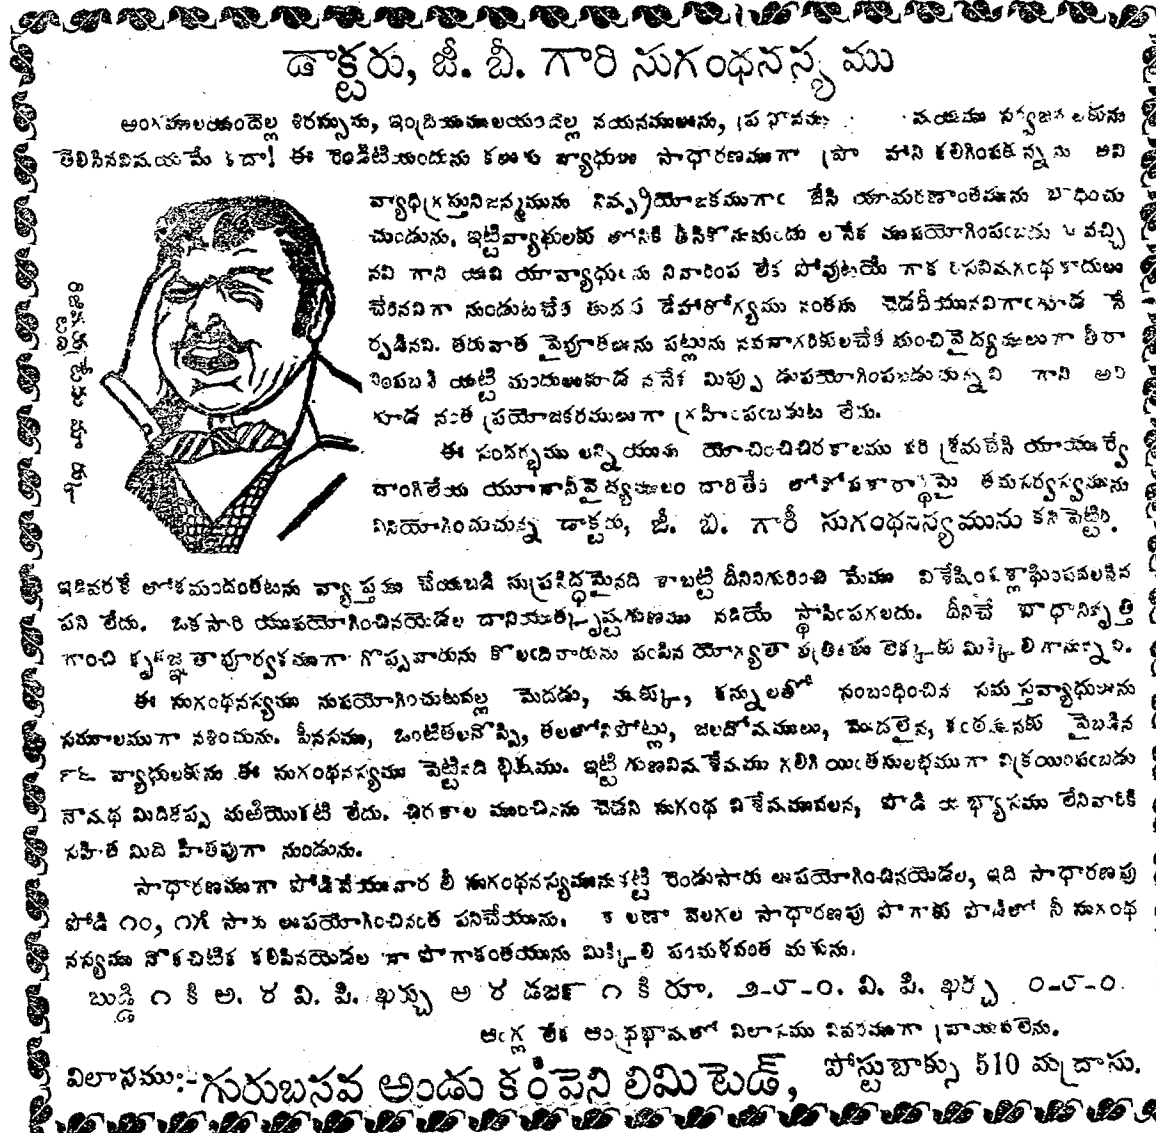 డాక్టరు, జీ. బీ. గారి సుగంధనస్యము
అంగములయందెల్ల శిరస్సును, ఇంద్రియములయందెల్ల నయనములును,
తెలిసినవిషయమే కదా! ఈ రెండిటియందును కలుగు వ్యాధులు సాధారణముగా హాని కలిగింపకున్నను అవి
వ్యాధిగ్రస్తునిజన్మమును నిష్ప్రయోజకముగాఁ జేసి యామరణాంతమును బాధించు
చుండును. ఇట్టివ్యాధులకు లోనికి తీసికొనుమందు లనేక ముపయోగింపఁబడు వచ్చి
నవి గాని యవి యావ్యాధులను నివారింప లేక పోవుటయే గాక
చేరినవిగా నుండుటచేత తుదకు దేహారోగ్యము నంతను చెడదీయునవిగాఁగూడ నే
ర్పడినవి. తరువాత పైపూతలును పట్లును నవనాగరికులచేత మంచివైద్యములుగా తీరా
నింపబడి యట్టి మందులుకూడ ననేక మిప్పు డుపయోగింపఁబడుచున్నవి గాని అవి
కూడ నంత ప్రయోజకరములుగా గ్రహింపఁబడుట లేదు.
ఈ సందర్భము లన్నియును యోచించిచిరకాలము పరిశ్రమచేసి యాయుర్వే
దాంగిలేయ యూనానీవైద్యములం దారితేరి లోకోపకారార్థమై తమసర్వస్వమును
వినియోగించుచున్న డాక్టరు, జీ. బి. గారీ సుగంధనస్యమును కనిపెట్టిరి.
ఇదివరకే లోకమందంతటను వ్యాప్తము చేయబడి సుప్రసిద్ధమైనది కాబట్టి దీనినిగురించి మేము విశేషించి శ్లాఘింపవలసిన
పని లేదు. ఒకసారి యుపయోగించినయెడల దానియుత్కృష్టగుణము నదియే స్థాపింపగలదు. దీనిచే బాధానివృత్తి
గాంచి కృతజ్ఞతాపూర్వకముగా గొప్పవారును కొలఁదివారును పంపిన యోగ్యతా పత్రికలు లెక్కకు మిక్కిలిగానున్నవి.
ఈ సుగంధనస్యము నుపయోగించుటవల్ల మెదడు, ముక్కు, కన్నులతో సంబంధించిన సమస్తవ్యాధులును
సమూలముగా నశించును. పీనసము, ఒంటితలనొప్పి, తలలోనిపోట్లు, జలదోషములు, మొదలైన, పైబడిన
వ్యాధులకును ఈ సుగంధనస్యము పెట్టినది భిక్షము. ఇట్టి గుణవిశేషము గలిగి యింతసులభముగా విక్రయింపఁబడు
నౌషధ మిదితప్ప మఱియొకటి లేదు. చిరకాల ముంచినను చెడని సుగంధ విశేషమువలన, పొడి యభ్యాసము లేనివారికి
సహిత మిది హితవుగా నుండును.
సాధారణముగా పోడివేయువార లీ సుగంధనస్యమునుకట్టి రెండుసారు లుపయోగించినయెడల, ఇది సాధారణపు
పోడి ౧౦, ౧౫ సారు లుపయోగించినంత పనిచేయును. కలణా వెలగల సాధారణపు పొగాకు పొడిలో నీ సుగంధ
నస్యము నొకచిటిక కలిపినయెడల నా పొగాకంతయును మిక్కిలి పరిమళవంత మగును.
బుడ్డి ౧ కి అ. ౪ వి. పి. ఖర్చు అ ౪ డజన్ ౧ కి రూ. ౨-౮-౦. వి. పి. ఖర్చు ౦-౮-౦.
ఆంగ్ల లేక ఆంధ్రభాషలో విలాసము వివరముగా వ్రాయవలెను.
విలాసము:-గురుబసవ అండు కంపెని లిమిటెడ్, పోస్టుబాక్సు 510 మద్రాసు.